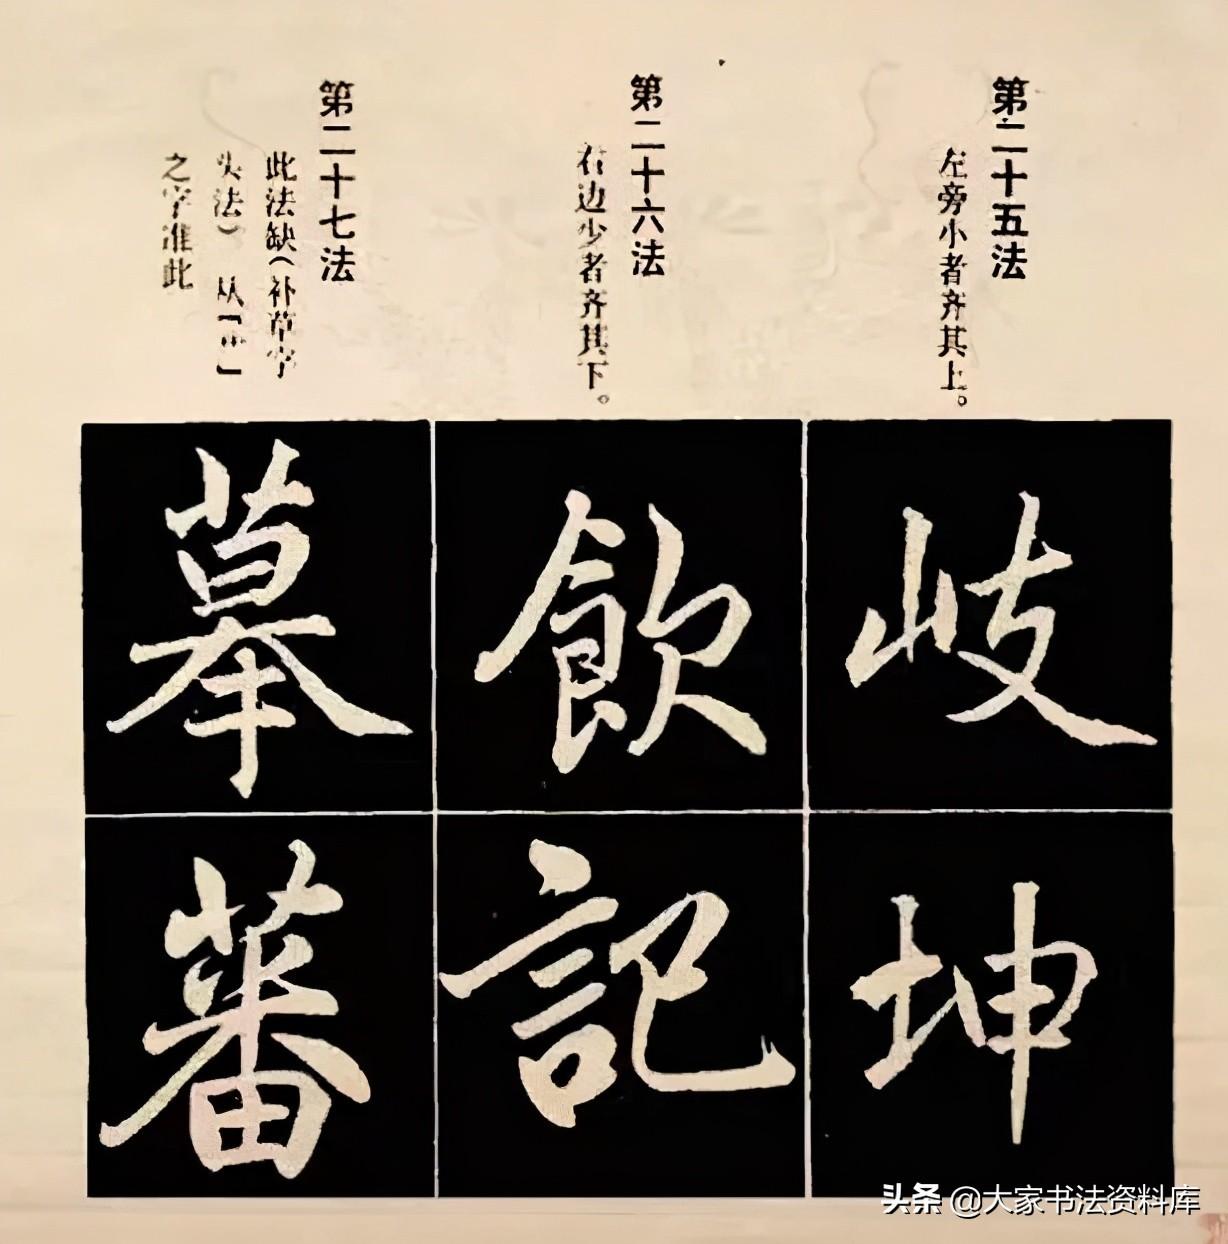 第二十五法
左旁小者齐其上。
岐
坤
第二十六法
右边少者齐其下。
飲
記
第二十七法
此法缺(补草字
头法) 从「艹」
之字准此
摹
蕃
头条 @大家书法资料库